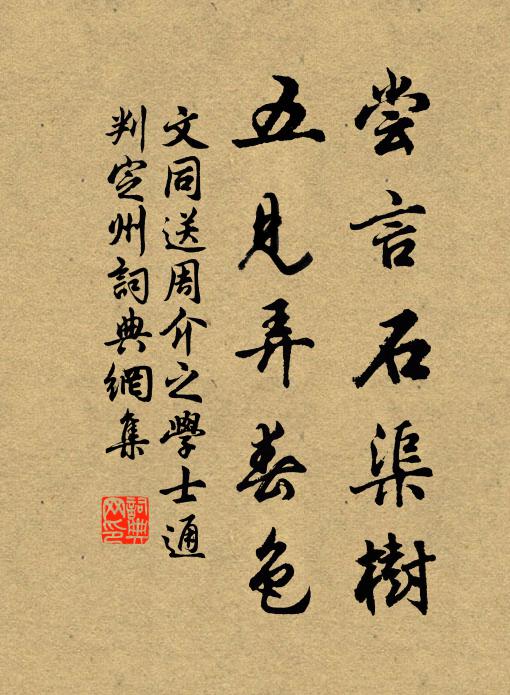 尝言石渠樹
五見弄春色
文同送周介之學士通
判定州詞典網集
詞典
网印